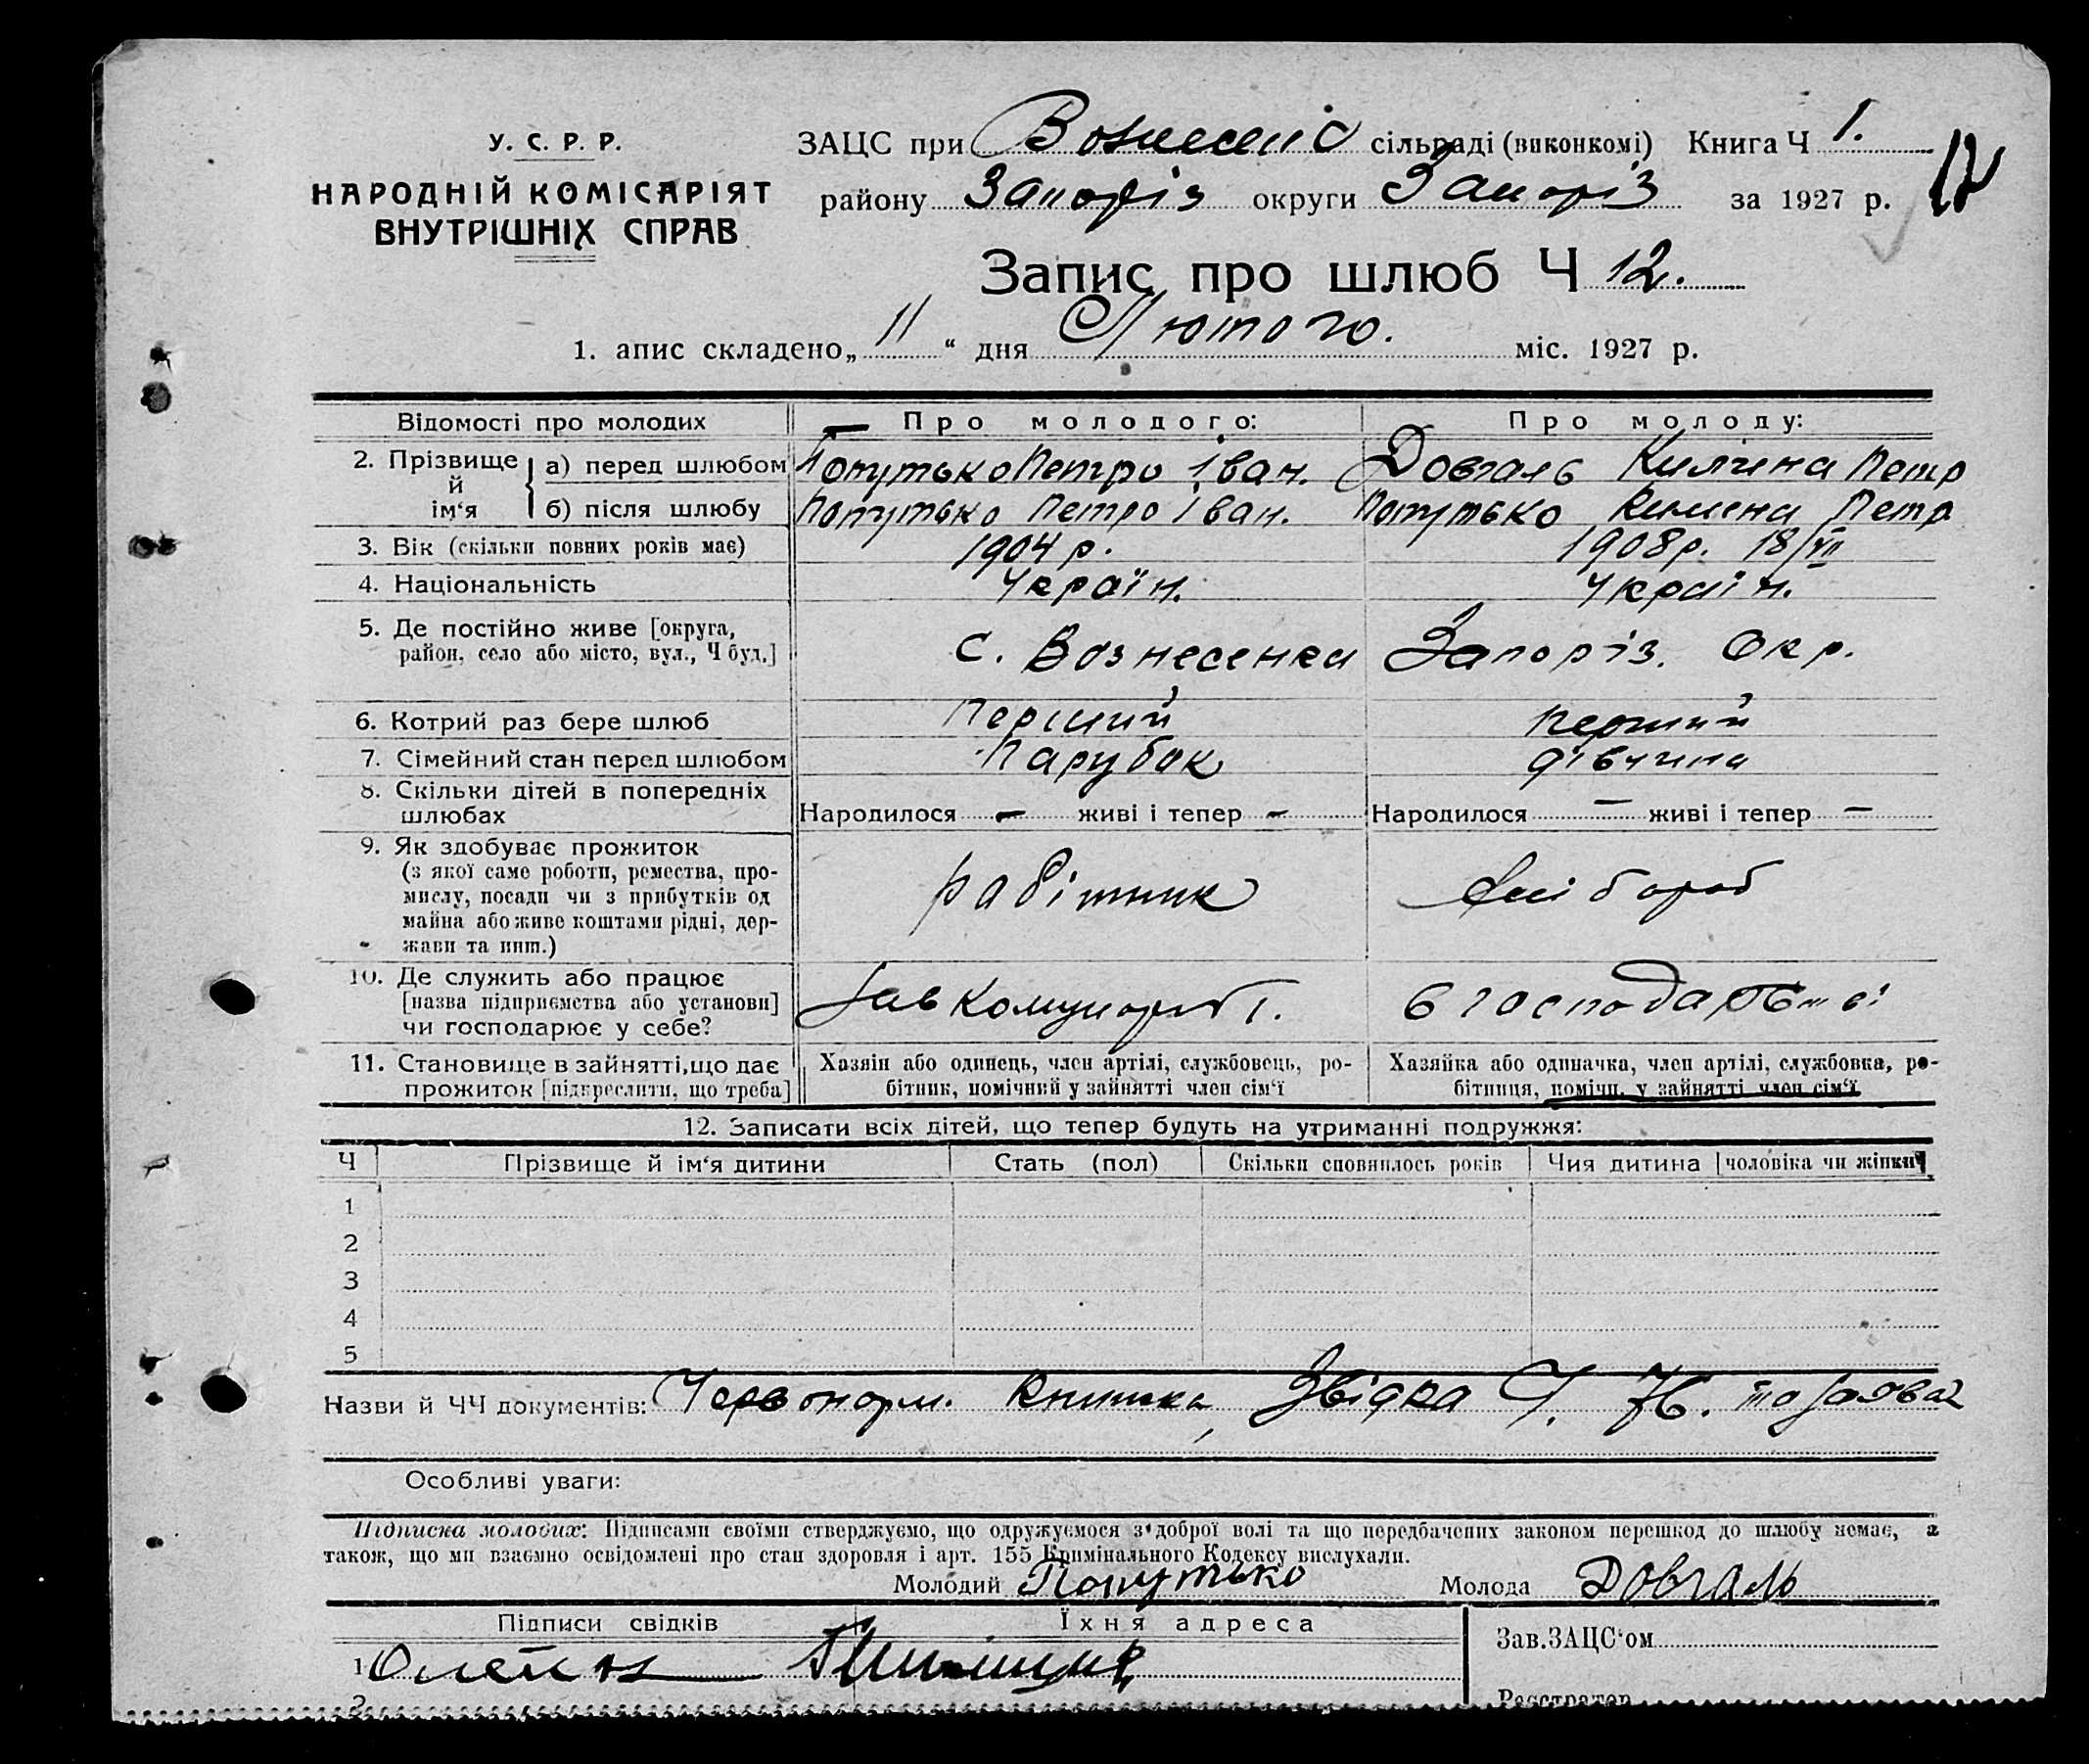 У. С. Р. Р.
НАРОДНІЙ КОМІСАРІЯТ
ВНУТРІШНІХ СПРАВ
ЗАЦС при Вознесенс сільраді (виконкомі) Книга Ч 1.
12
району Запоріз округи Запоріз за 1927 р.
Запис про шлюб Ч 12.
1. апис складено „ 11 “ дня Лютого. міс. 1927 р.
Відомості про молодих Про молодого: Про молоду:
2. Прізвище й ім‘я
а) перед шлюбом Попутько Петро Іван. Довгаль Килина Петр
б) після шлюбу Попутько Петро Іван. Попутько Килина Петр
3. Вік (скільки повних років має) 1904 р. 1908 р. 18/VII
4. Національність Україн. Україн.
5. Де постійно живе [округа,
район, село або місто, вул., Ч буд.] с. Вознесенка Запоріз. Окр.
6. Котрий раз бере шлюб Перший перший
7. Сімейний стан перед шлюбом Парубок дівчина
8. Скільки дітей в попередніх
шлюбах Народилося — живі і тепер — Народилося — живі і тепер —
9. Як здобуває прожиток
(з якої саме роботи, ремества, про-
мислу, посади чи з прибутків од
майна або живе коштами рідні, дер-
жави та инш.) робітник хлібороб
10. Де служить або працює
[назва підприємства або установи]
чи господарює у себе? в господарстві
11. Становище в зайнятті, що дає
прожиток [підкреслити, що треба]
Хазяін або одинець, член артілі, службовець, ро-
бітник, помічний у зайнятті член сім‘ї
Хазяйка або одиначка, член артілі, службовка, ро-
бітниця, помічн. у зайнятті член сім‘ї
12. Записати всіх дітей, що тепер будуть на утриманні подружжя:
Ч Прізвище й ім‘я дитини Стать (пол) Скільки сповнилось років Чия дитина [чоловіка чи жінки]
1
2
3
4
5
Назви й ЧЧ документів: Червоноарм. Книжка, Звідка та заява
Особливі уваги:
Підписка молодих: Підписами своїми стверджуємо, що одружуємося з доброї волі та що передбачених законом перешкод до шлюбу немає, а
також, що ми взаємно освідомлені про стан здоровля і арт. 155 Кримінального Кодексу вислухали.
Молодий Попутько Молода Довгаль
Підписи свідків Їхня адреса
Зав. ЗАЦС‘ом
1
2
Реєстратор